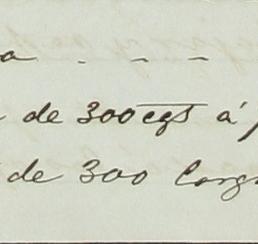 a - - -
de 300 cgs á
de 300 Carg